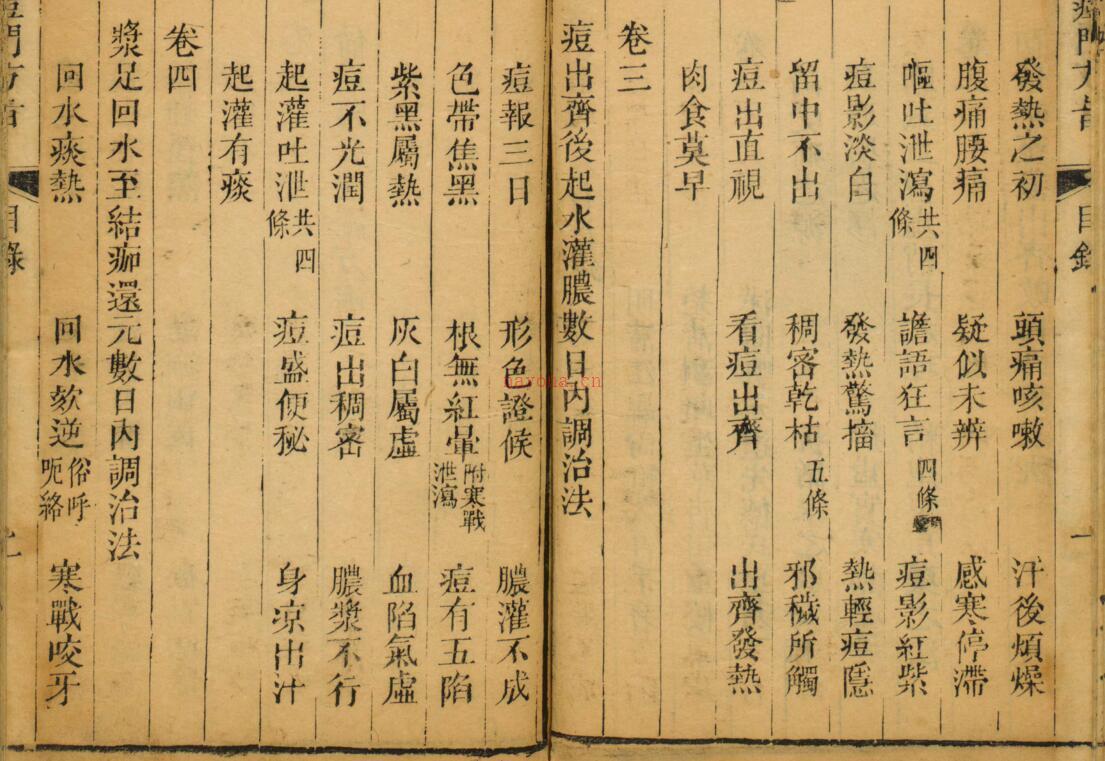 痘門方旨 目錄 一
發熱之初 頭痛咳嗽 汗後煩燥
腹痛腰痛 疑似未辨 感寒停滯
嘔吐泄瀉 共四條 譫語狂言 四條 痘影紅紫
痘影淡白 發熱驚搐 熱輕痘隱
留中不出 稠密乾枯 五條 邪穢所觸
痘出直視 看痘出齊 出齊發熱
肉食莫早
卷三
痘出齊後起水灌膿數日內調治法
痘報三日 形色證候 膿灌不成
色帶焦黑 根無紅暈 附寒戰泄瀉 痘有五陷
紫黑屬熱 灰白屬虛 血陷氣虛
痘不光潤 痘出稠密 膿漿不行
起灌吐泄 共四條 痘盛便秘 身凉出汗
起灌有痰
卷四
漿足回水至結痂還元數日內調治法
回水痰熱 回水欬逆 俗呼呃絡 寒戰咬牙
門方旨 目錄
haroha.cn